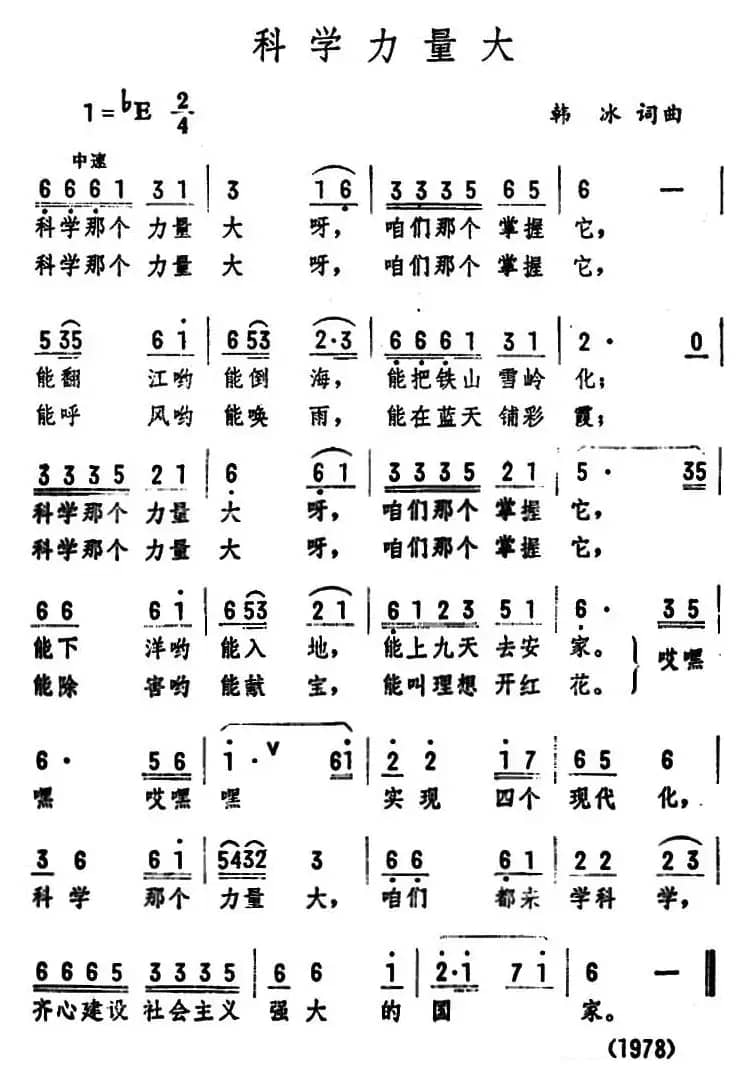 科学力量大
1=♭E 2/4 韩 冰 词曲
中速
6 6 6 1 3 1 | 3 1 6 | 3 3 3 5 6 5 | 6 — |
科学那个 力量 大 呀， 咱们那个 掌握 它，
科学那个 力量 大 呀， 咱们那个 掌握 它，
5 35 6 i | 6 53 2·3 | 6 6 6 1 3 1 | 2 · 0 |
能翻 江哟 能倒 海， 能把铁山 雪岭 化；
能呼 风哟 能唤 雨， 能在蓝天 铺彩 霞；
3 3 3 5 2 1 | 6 6 1 | 3 3 3 5 2 1 | 5 · 35 |
科学那个 力量 大 呀， 咱们那个 掌握 它，
科学那个 力量 大 呀， 咱们那个 掌握 它，
6 6 6 i | 6 53 2 1 | 6 1 2 3 5 1 | 6 · 3 5 |
能下 洋哟 能入 地， 能上九天 去安 家。 哎嘿
能除 害哟 能献 宝， 能叫理想 开红 花。
6 · 5 6 | i · ∨ 6i | 2 2 i 7 | 6 5 6 |
嘿 哎嘿 嘿 实现 四个 现代 化，
3 6 6 i | 5432 3 | 6 6 6 1 | 2 2 2 3 |
科 学 那个 力量 大， 咱们 都来 学科 学，
6 6 6 5 3 3 3 5 | 6 6 i | 2·i 7 i | 6 — ‖
齐心建设 社会主义 强大 的 国 家。
（1978）